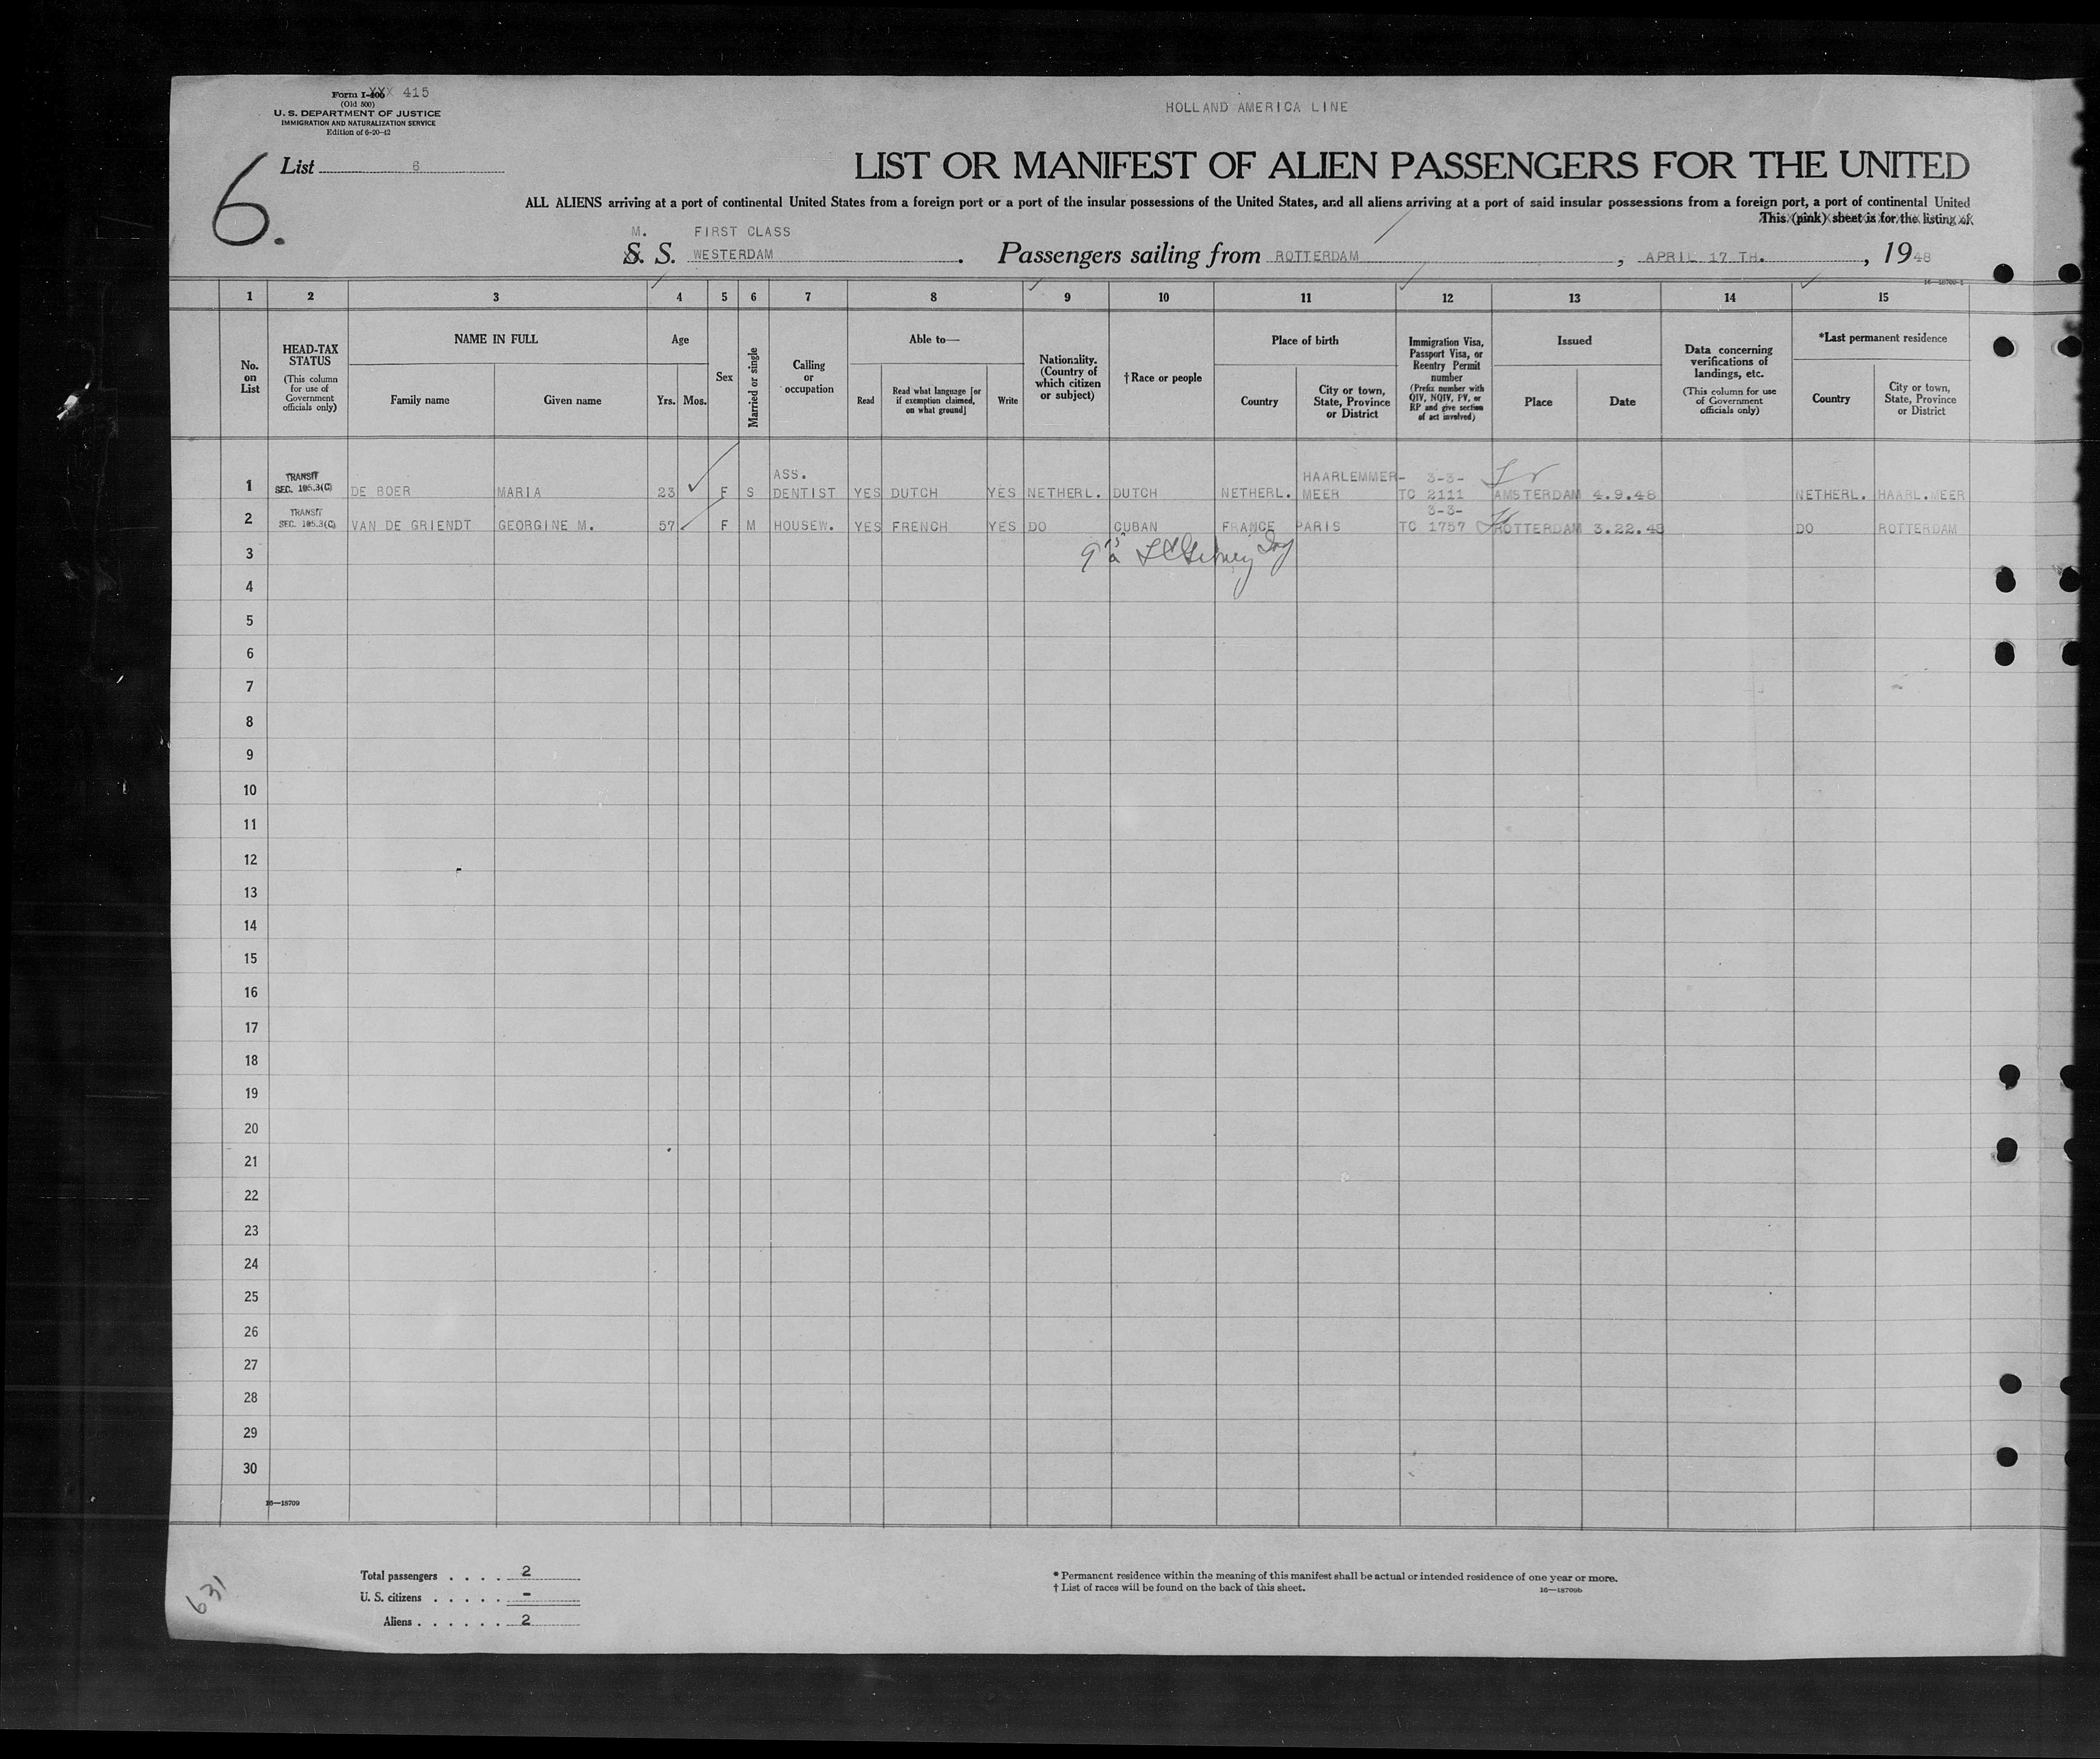 Form I-406 XXX 415
(Old 500)
U. S. DEPARTMENT OF JUSTICE
IMMIGRATION AND NATURALIZATION SERVICE
Edition of 6-20-42
HOLLAND AMERICA LINE
6.
List 6
LIST OR MANIFEST OF ALIEN PASSENGERS FOR THE UNITED
ALL ALIENS arriving at a port of continental United States from a foreign port or a port of the insular possessions of the United States, and all aliens arriving at a port of said insular possessions from a foreign port, a port of continental United
This (pink) sheet is for the listing of
M. FIRST CLASS
S. S. WESTERDAM. Passengers sailing from ROTTERDAM, APRIL 17 TH., 1948
1 2 3 4 5 6 7 8 9 10 11 12 13 14 15
No. on List
HEAD-TAX STATUS
(This column for use of Government officials only)
NAME IN FULL
Family name
Given name
Age
Yrs.
Mos.
Sex
Married or single
Calling or occupation
Able to—
Read
Read what language [or if exemption claimed, on what ground]
Write
Nationality. (Country of which citizen or subject)
†Race or people
Place of birth
Country
City or town, State, Province or District
Immigration Visa, Passport Visa, or Reentry Permit number
(Prefix number with QIV, NQIV, PV, or RP and give section of act involved)
Issued
Place
Date
Data concerning verifications of landings, etc.
(This column for use of Government officials only)
*Last permanent residence
Country
City or town, State, Province or District
1 TRANSIT SEC. 105.3(C) DE BOER MARIA 23 F S ASS. DENTIST YES DUTCH YES NETHERL. DUTCH NETHERL. HAARLEMMER-MEER 3-3- TC 2111 AMSTERDAM 4.9.48 NETHERL. HAARL.MEER
2 TRANSIT SEC. 105.3(C) VAN DE GRIENDT GEORGINE M. 57 F M HOUSEW. YES FRENCH YES DO CUBAN FRANCE PARIS 3-3- TC 1757 ROTTERDAM 3.22.48 DO ROTTERDAM
3
4
5
6
7
8
9
10
11
12
13
14
15
16
17
18
19
20
21
22
23
24
25
26
27
28
29
30
16—18709
Total passengers . . . . 2
U. S. citizens . . . . . -
Aliens . . . . . . 2
* Permanent residence within the meaning of this manifest shall be actual or intended residence of one year or more.
† List of races will be found on the back of this sheet.
16—18709b
631